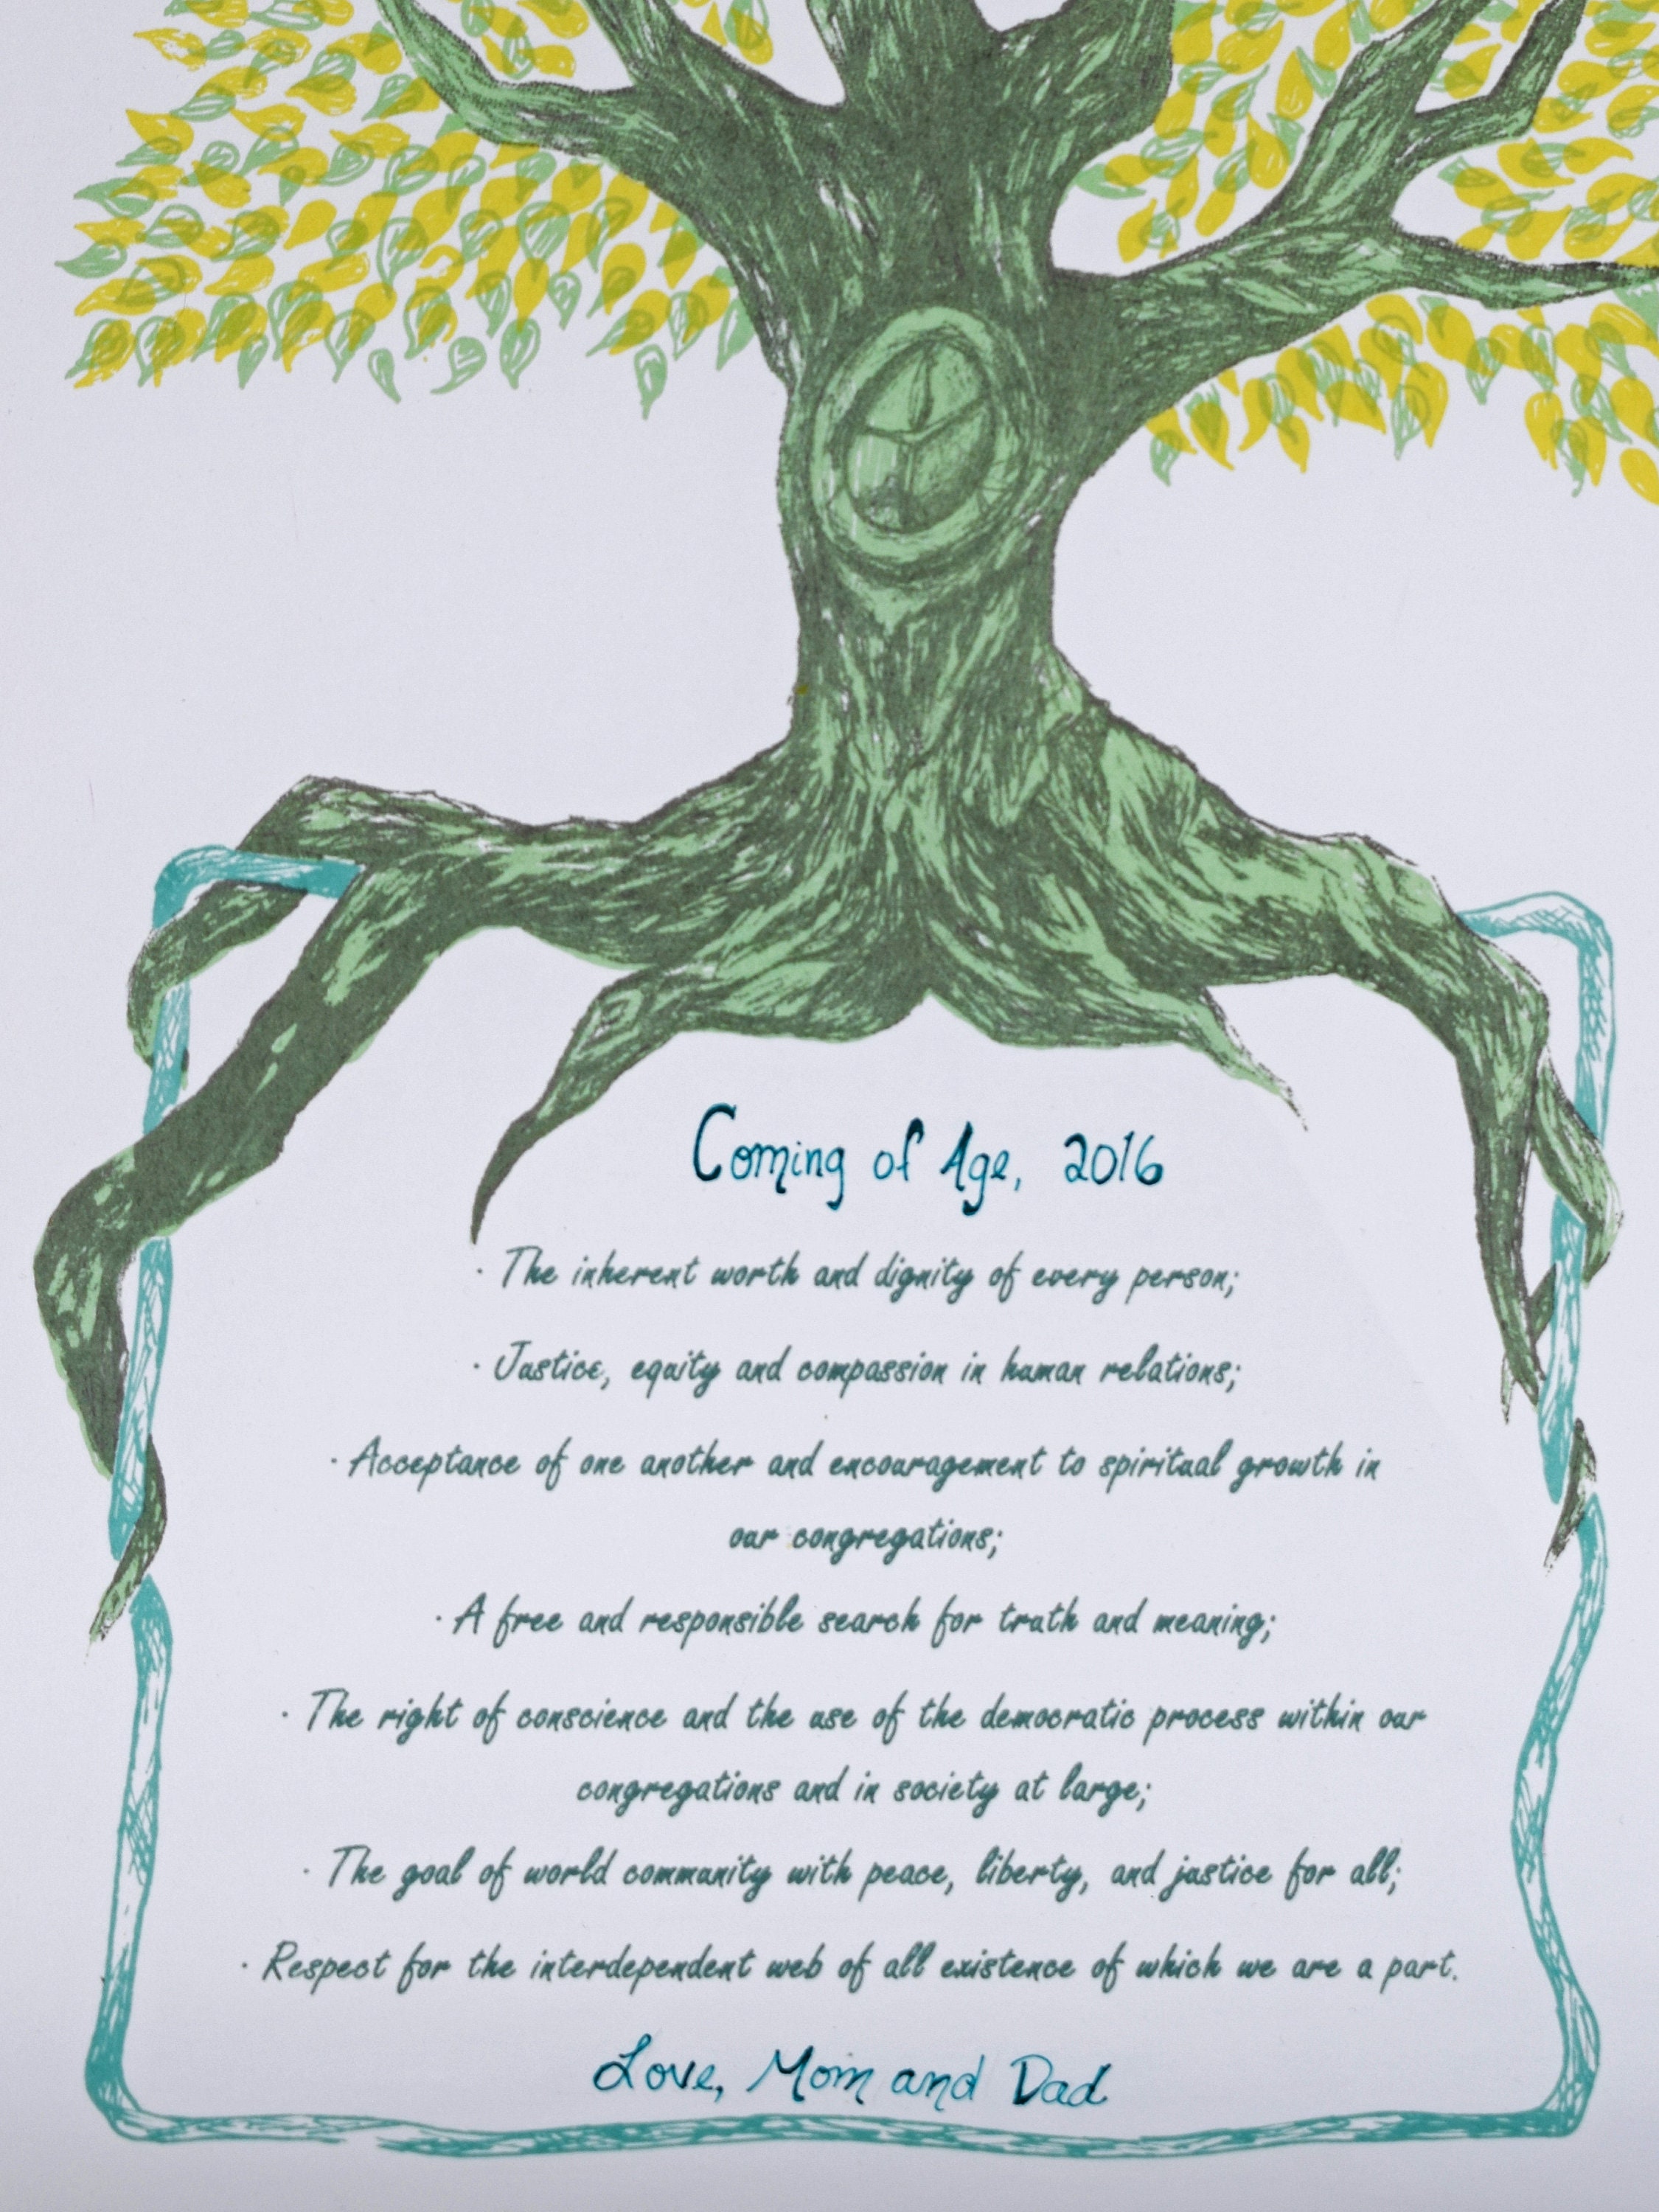 Coming of Age, 2016
· The inherent worth and dignity of every person;
· Justice, equity and compassion in human relations;
· Acceptance of one another and encouragement to spiritual growth in
our congregations;
· A free and responsible search for truth and meaning;
· The right of conscience and the use of the democratic process within our
congregations and in society at large;
· The goal of world community with peace, liberty, and justice for all;
· Respect for the interdependent web of all existence of which we are a part.
Love, Mom and Dad